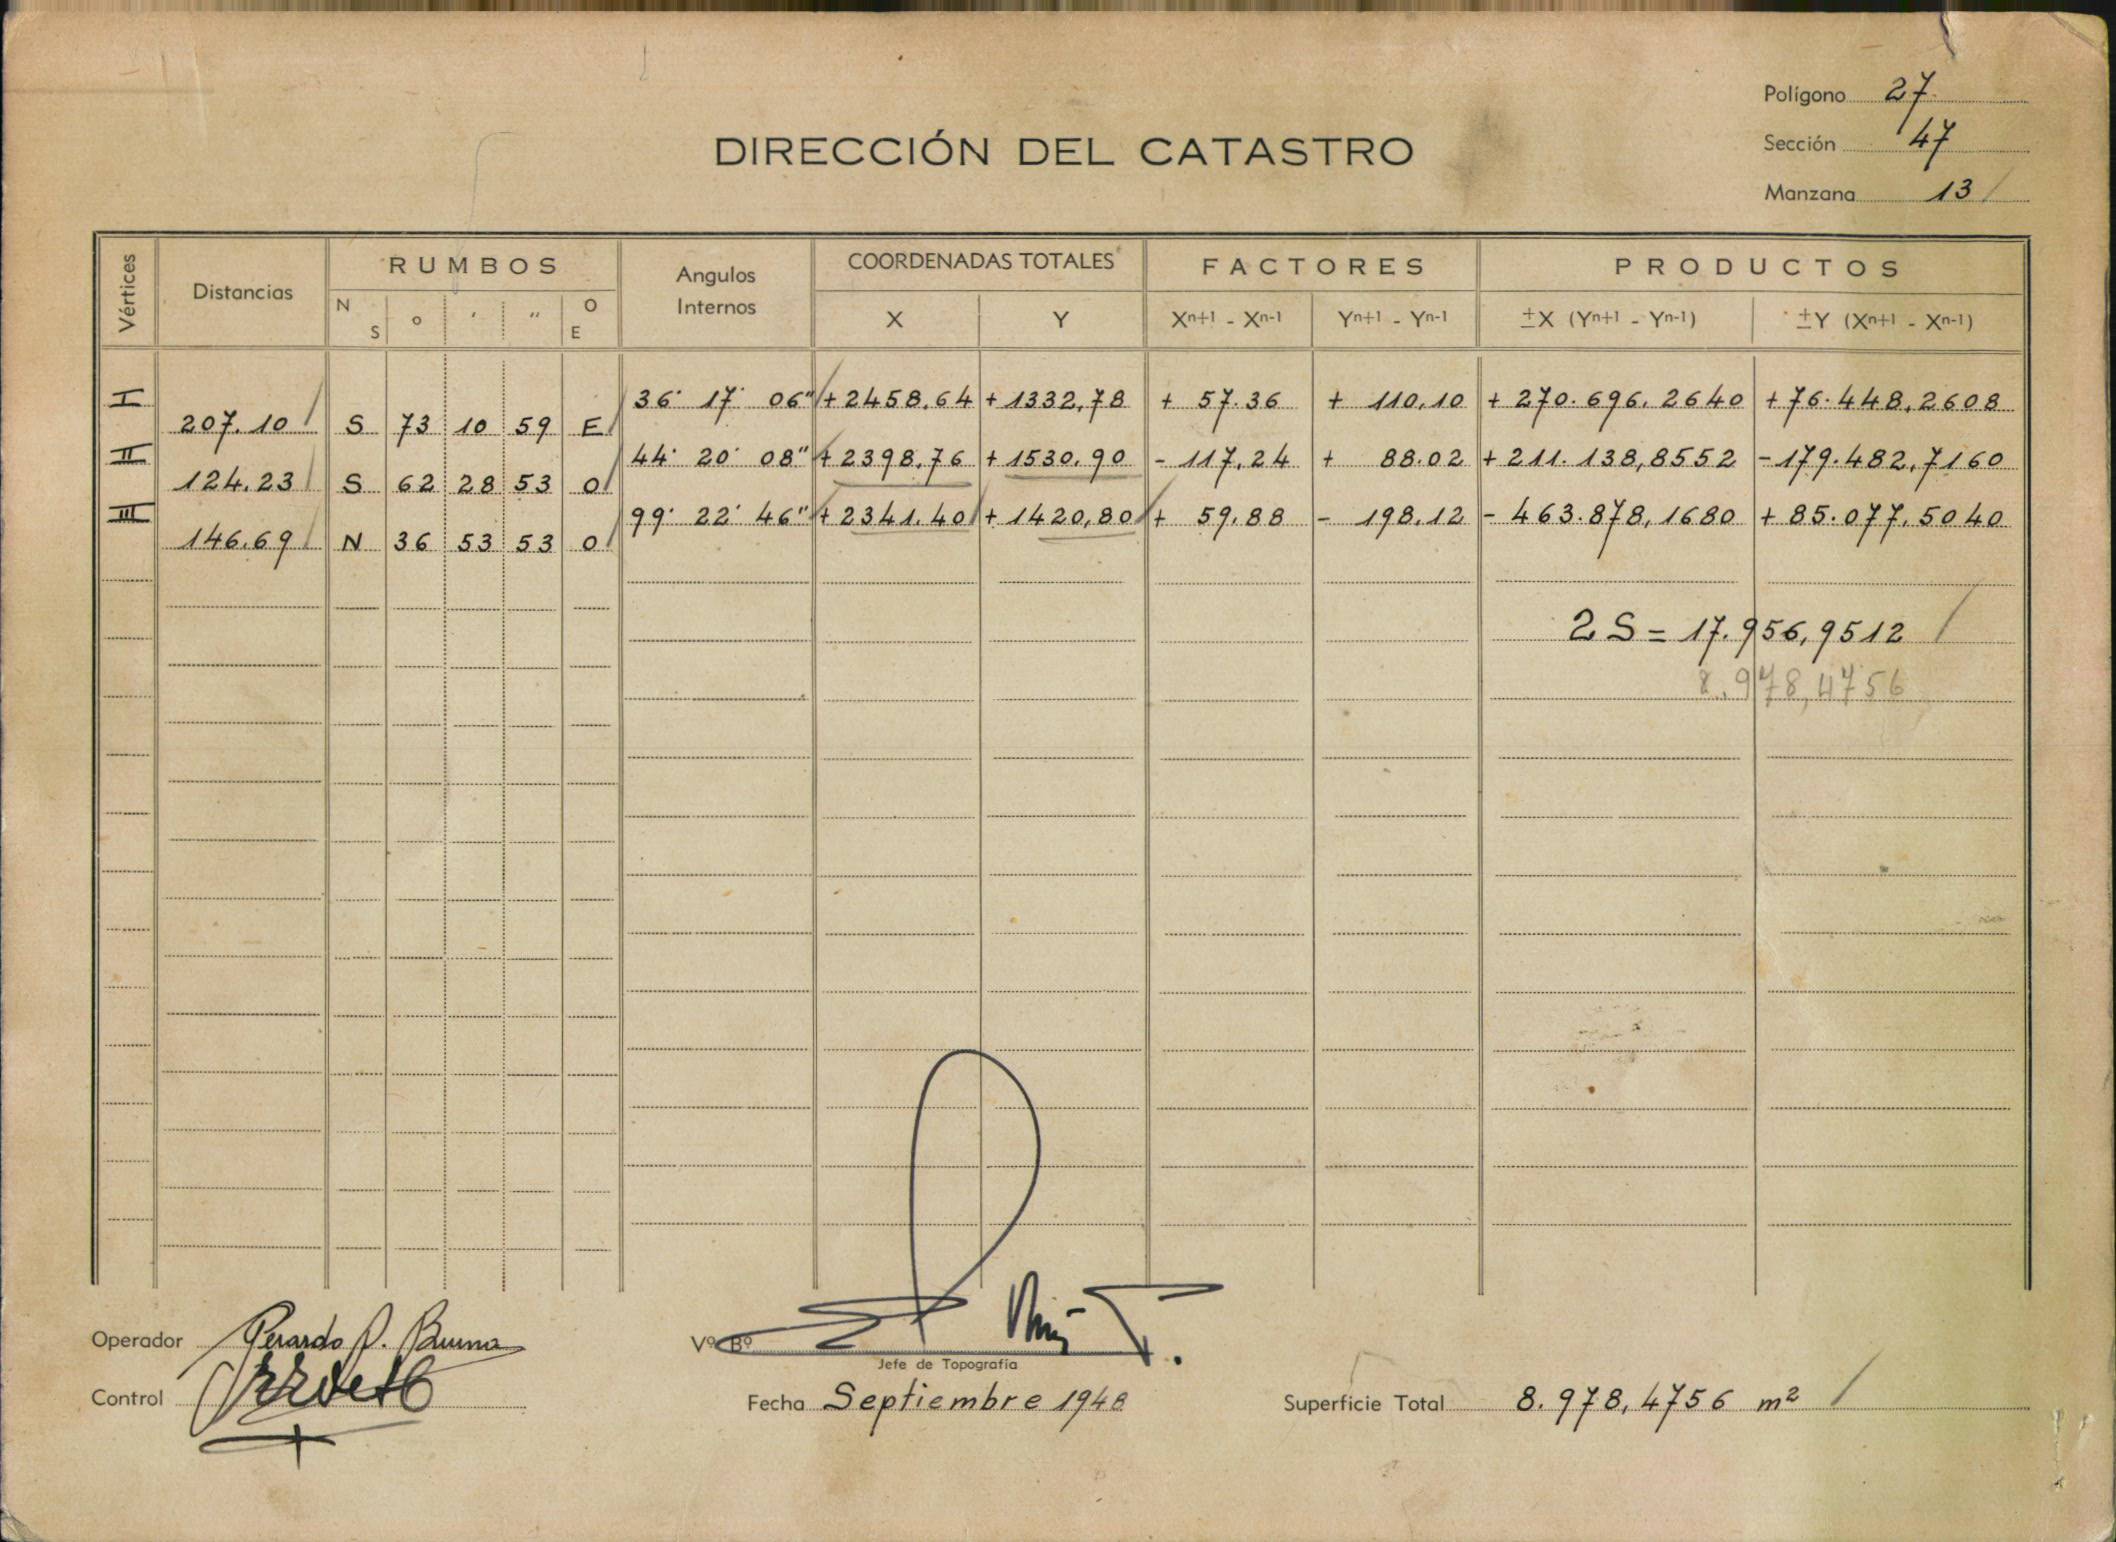 Polígono 27
Sección 47
Manzana 13
DIRECCIÓN DEL CATASTRO
Vértices Distancias RUMBOS Angulos Internos COORDENADAS TOTALES FACTORES PRODUCTOS
N S ° ' " O E X Y Xn+1 - Xn-1 Yn+1 - Yn-1 ±X (Yn+1 - Yn-1) ±Y (Xn+1 - Xn-1)
I 36° 17' 06" +2458,64 +1332,78 + 57.36 + 110,10 + 270.696,2640 +76.448,2608
207.10 S 73 10 59 E
II 44° 20' 08" +2398,76 +1530,90 - 117,24 + 88.02 +211.138,8552 -179.482,7160
124.23 S 62 28 53 O
III 99° 22' 46" +2341.40 +1420,80 + 59.88 - 198.12 - 463.878,1680 +85.077,5040
146.69 N 36 53 53 O
2S = 17.956,9512
8.978,4756
Operador Gerardo P. Bruma
Vº Bº
Jefe de Topografía
Control
Fecha Septiembre 1948
Superficie Total 8.978,4756 m²